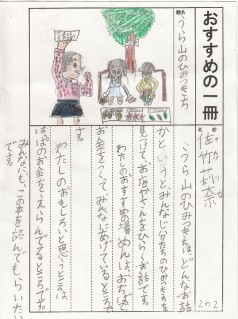 おすすめの一冊
題名
うら山のひみつきち
名前
佐竹莉奈
2の2
うら山のひみつきちは、どんなお話
かというと、みんなじぶんたちのひみつきちを
見つけて、お店やさんをひらくお話です。
わたしのおすすめの場めんは、おちばで
お金をつくって、みんなにあげているところで
す。
わたしのおもしろいと思うところは、
はっぱのお金をえらんでるところです。
みんなにも、この本を読んでもらいたい
です。